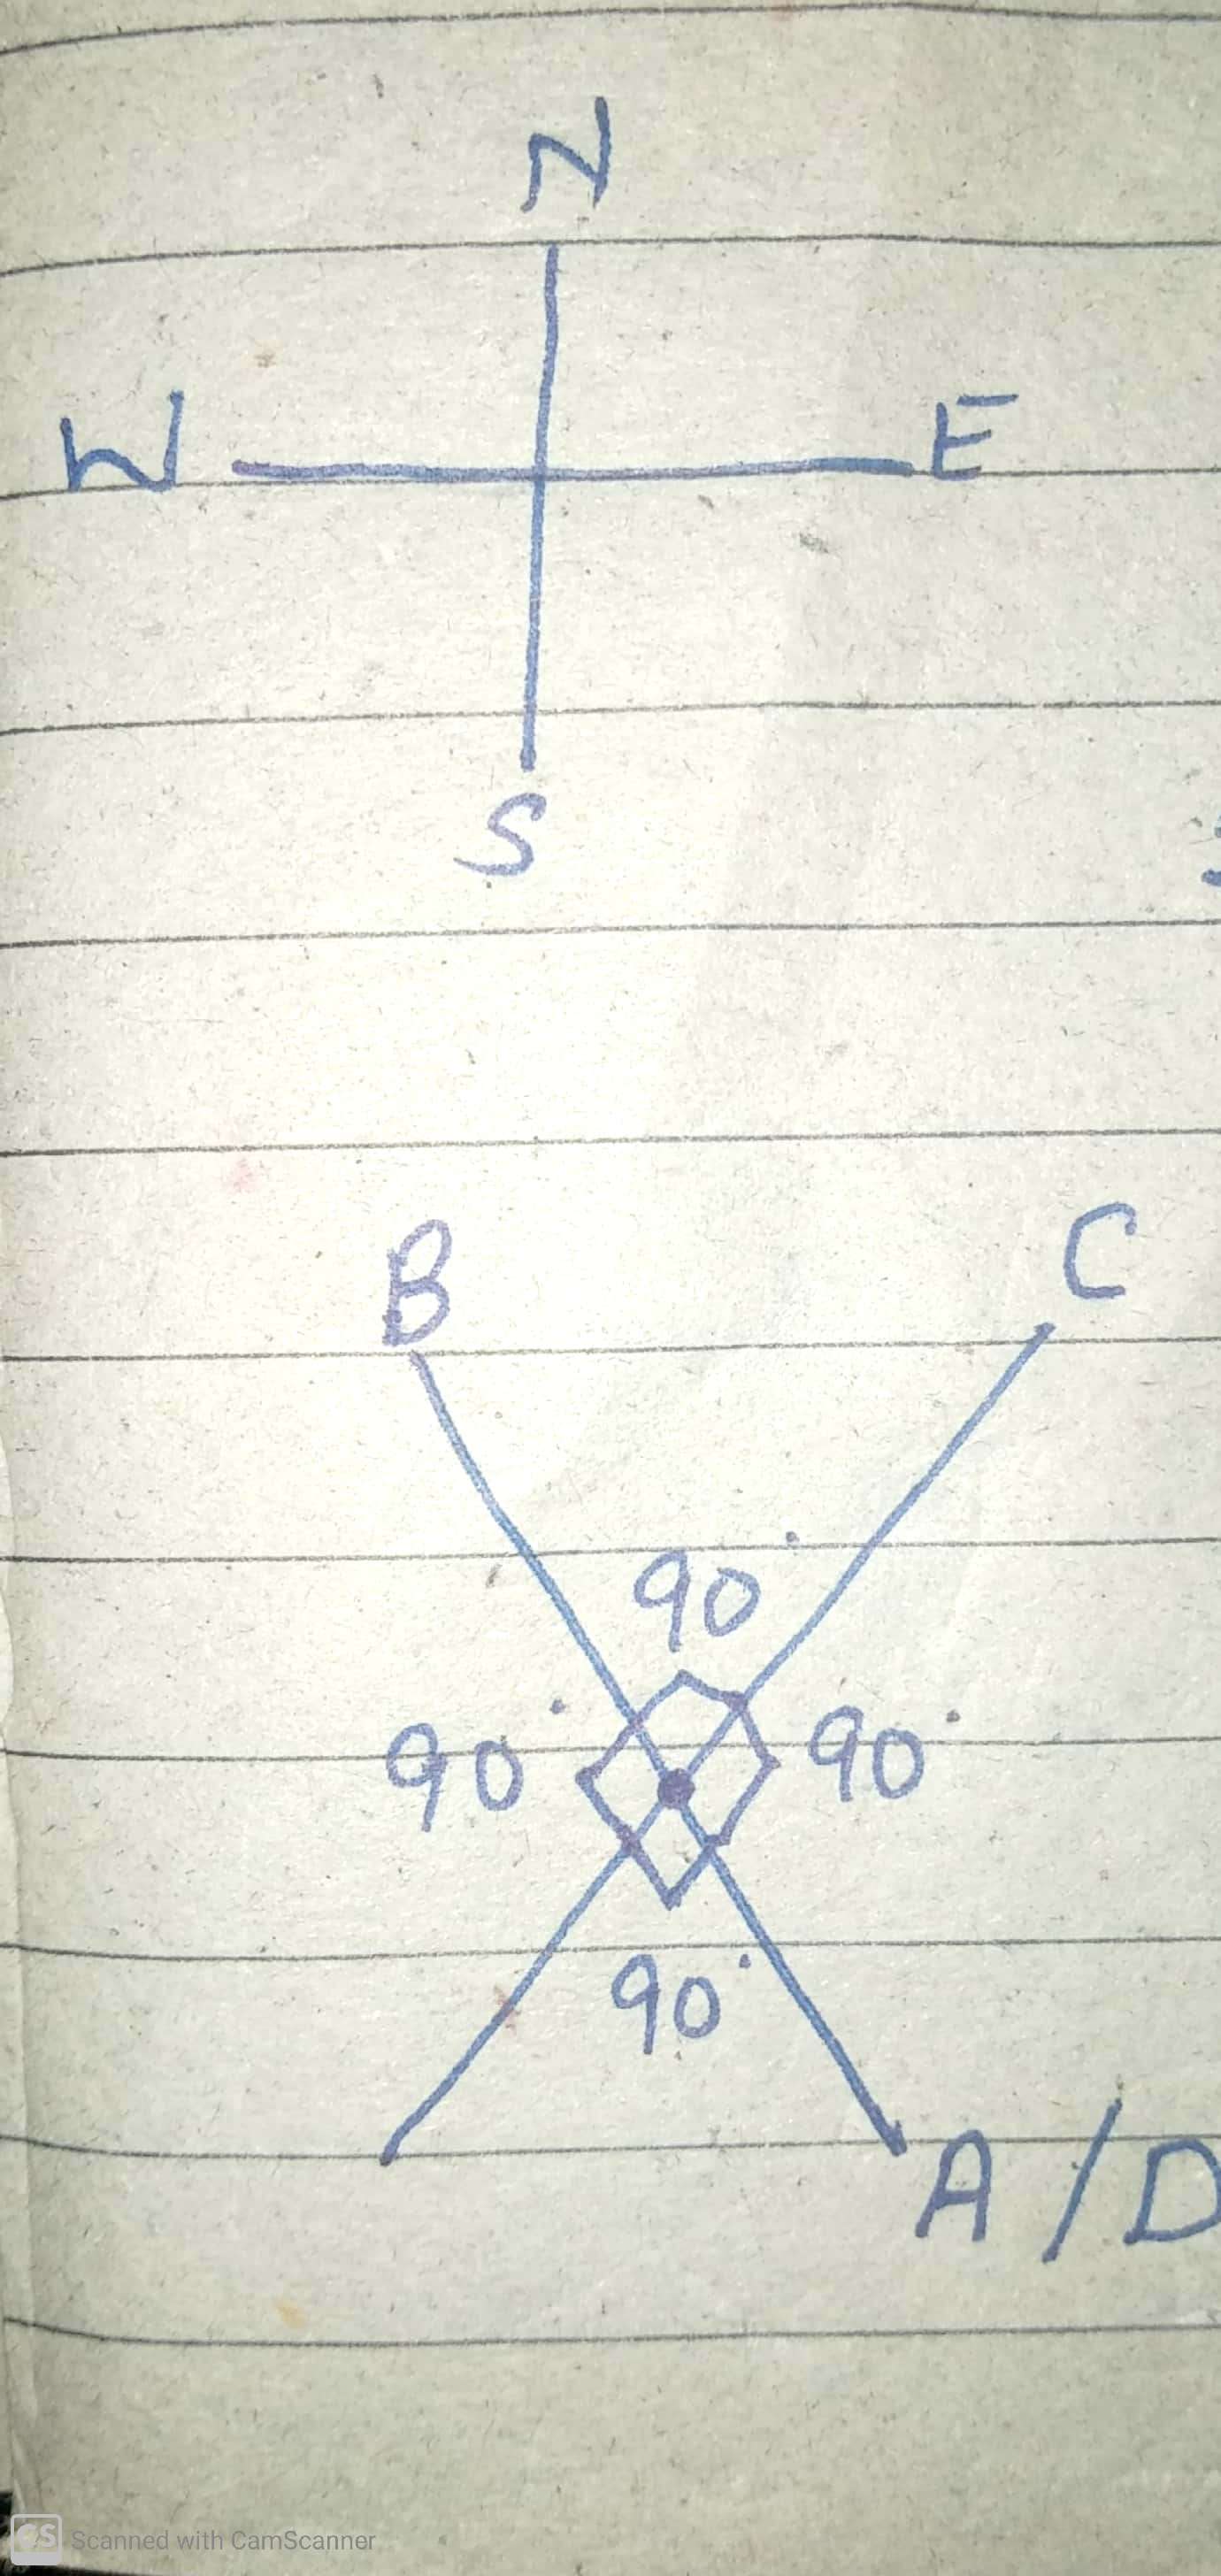 N
W E
S
B C
90°
90° 90°
90°
A/D
CS Scanned with CamScanner